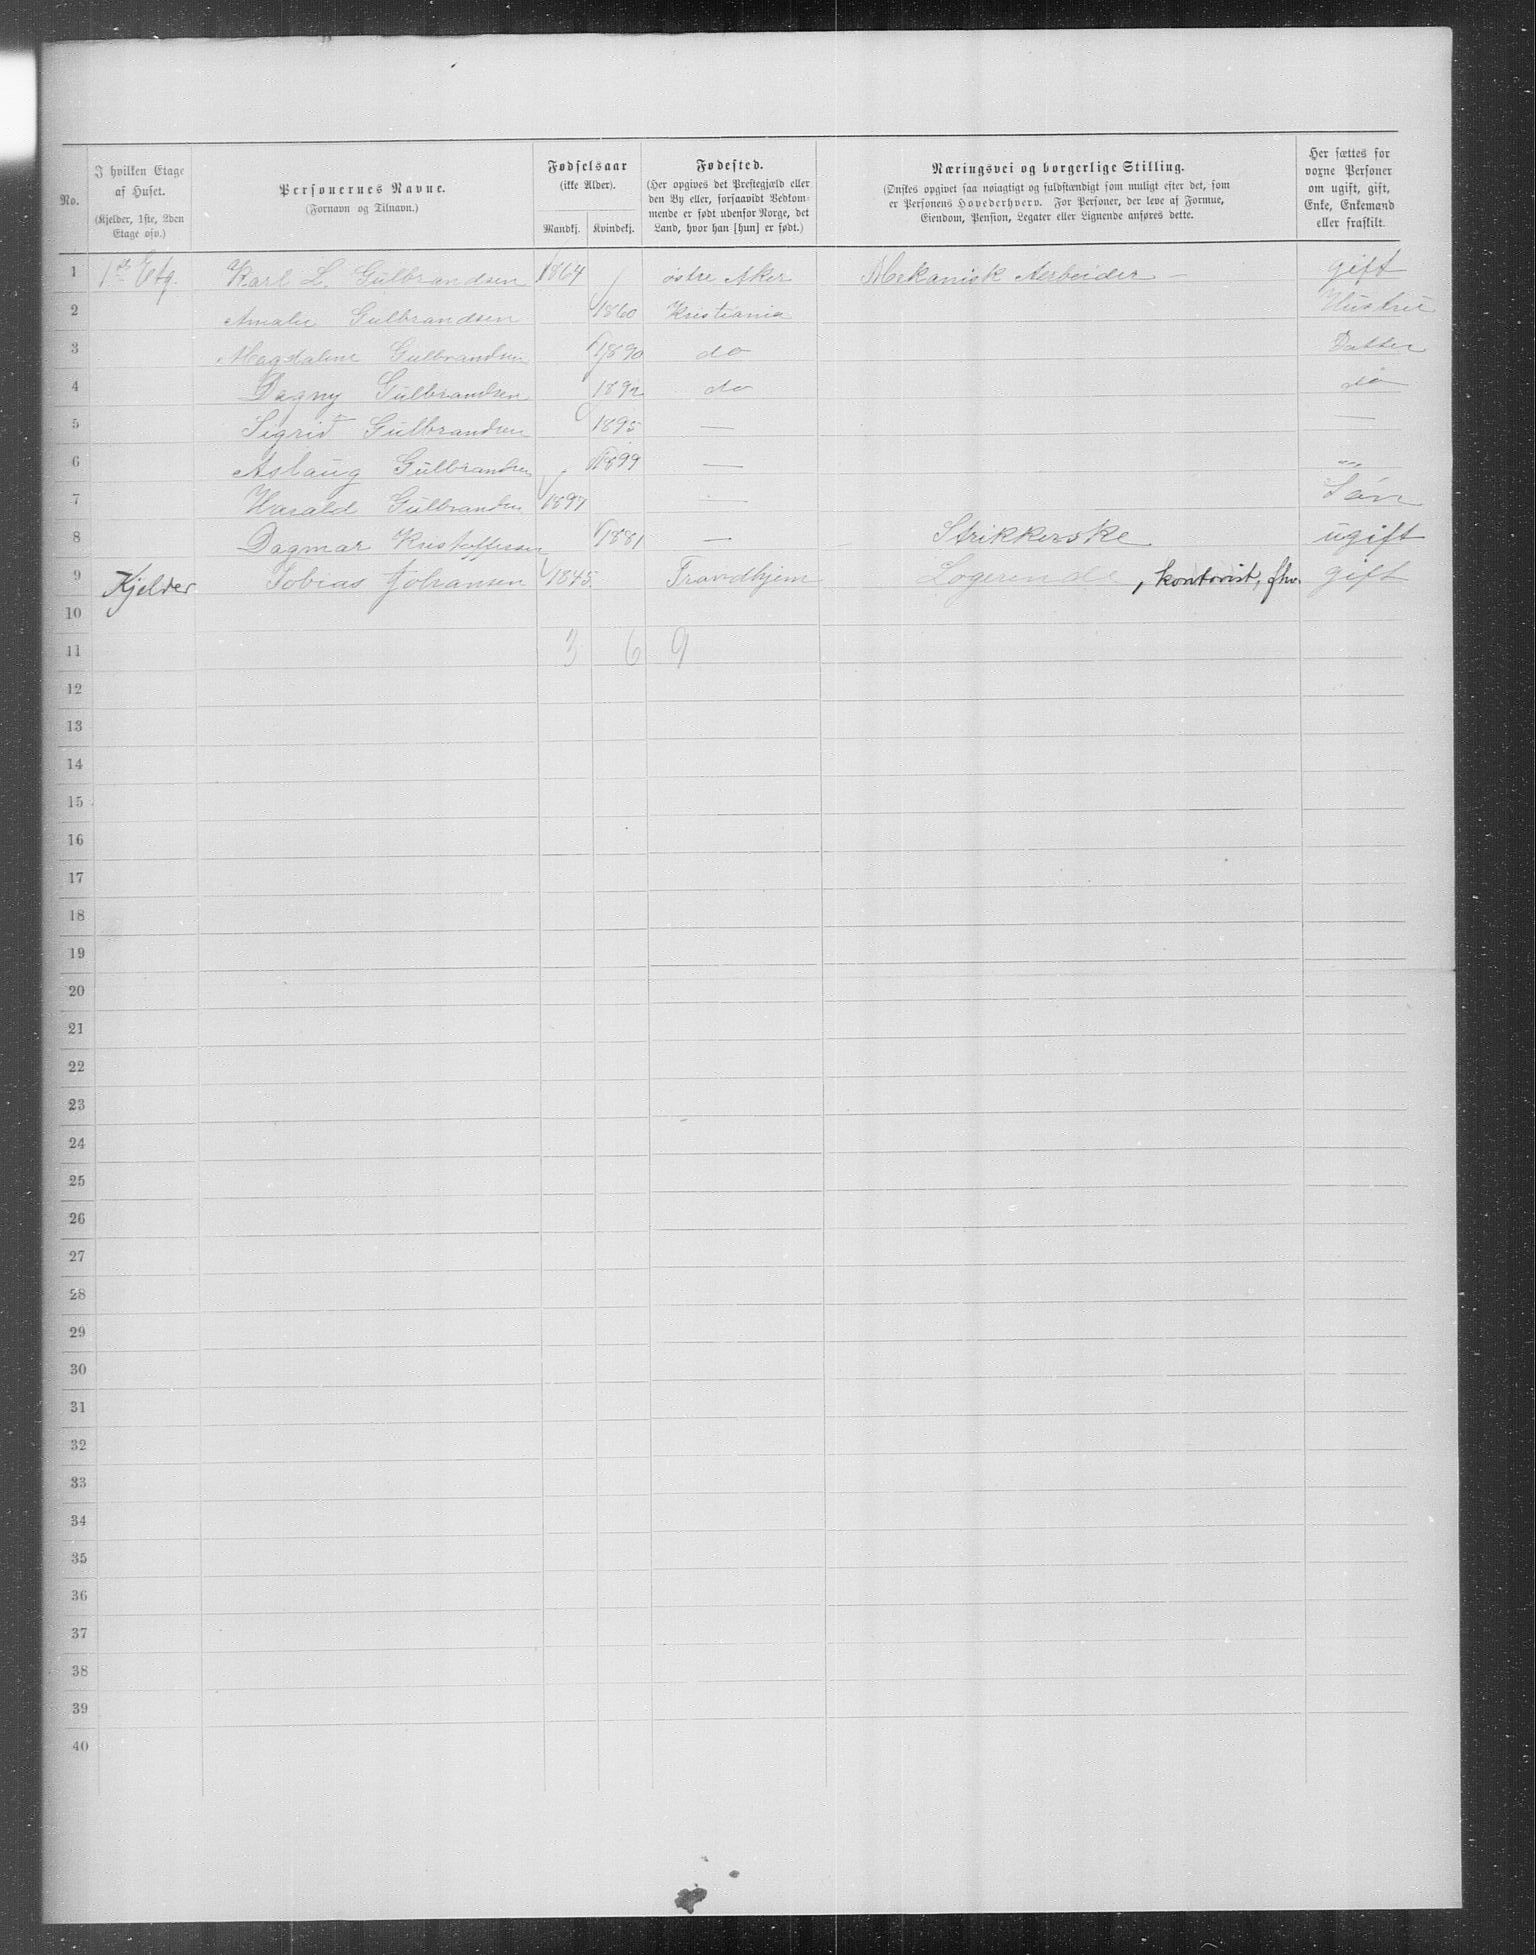 No. | I hvilken Etage af Huset. (Kjelder, 1ste, 2den Etage osv.) | Personernes Navne. (Fornavn og Tilnavn.) | Fødselsaar (ikke Alder). Mandkj. | Kvindekj. | Fødested. (Her opgives det Præstegjæld eller den By eller, forsaavidt Vedkommende er født udenfor Norge, det Land, hvor han [hun] er født.) | Næringsvei og borgerlige Stilling. (Ønskes opgivet saa nøiagtigt og fuldstændigt som muligt efter det, som er Personens Hovederhverv. For Personer, der leve af Formue, Eiendom, Pension, Legater eller Lignende anføres dette. | Her sættes for voxne Personer om ugift, gift, Enke, Enkemand eller fraskilt.
1 1ste Etg. Karl L. Gulbrandsen 1864 østre Aker Mekanisk Arbeider – gift
2 Amalie Gulbrandsen 1860 Kristiania Hustru
3 Magdalene Gulbrandsen 1890 do Datter
4 Dagny Gulbrandsen 1892 do do
5 Sigrid Gulbrandsen 1895 — —
6 Aslaug Gulbrandsen 1899 — "
7 Harald Gulbrandsen 1897 — Søn
8 Dagmar Kristoffersen 1881 — Strikkerske ugift
9 Kjelder Tobias Johansen 1845 Trondhjem Logerende, kontorist, fhv. gift
10
11 3 6 9
12
13
14
15
16
17
18
19
20
21
22
23
24
25
26
27
28
29
30
31
32
33
34
35
36
37
38
39
40